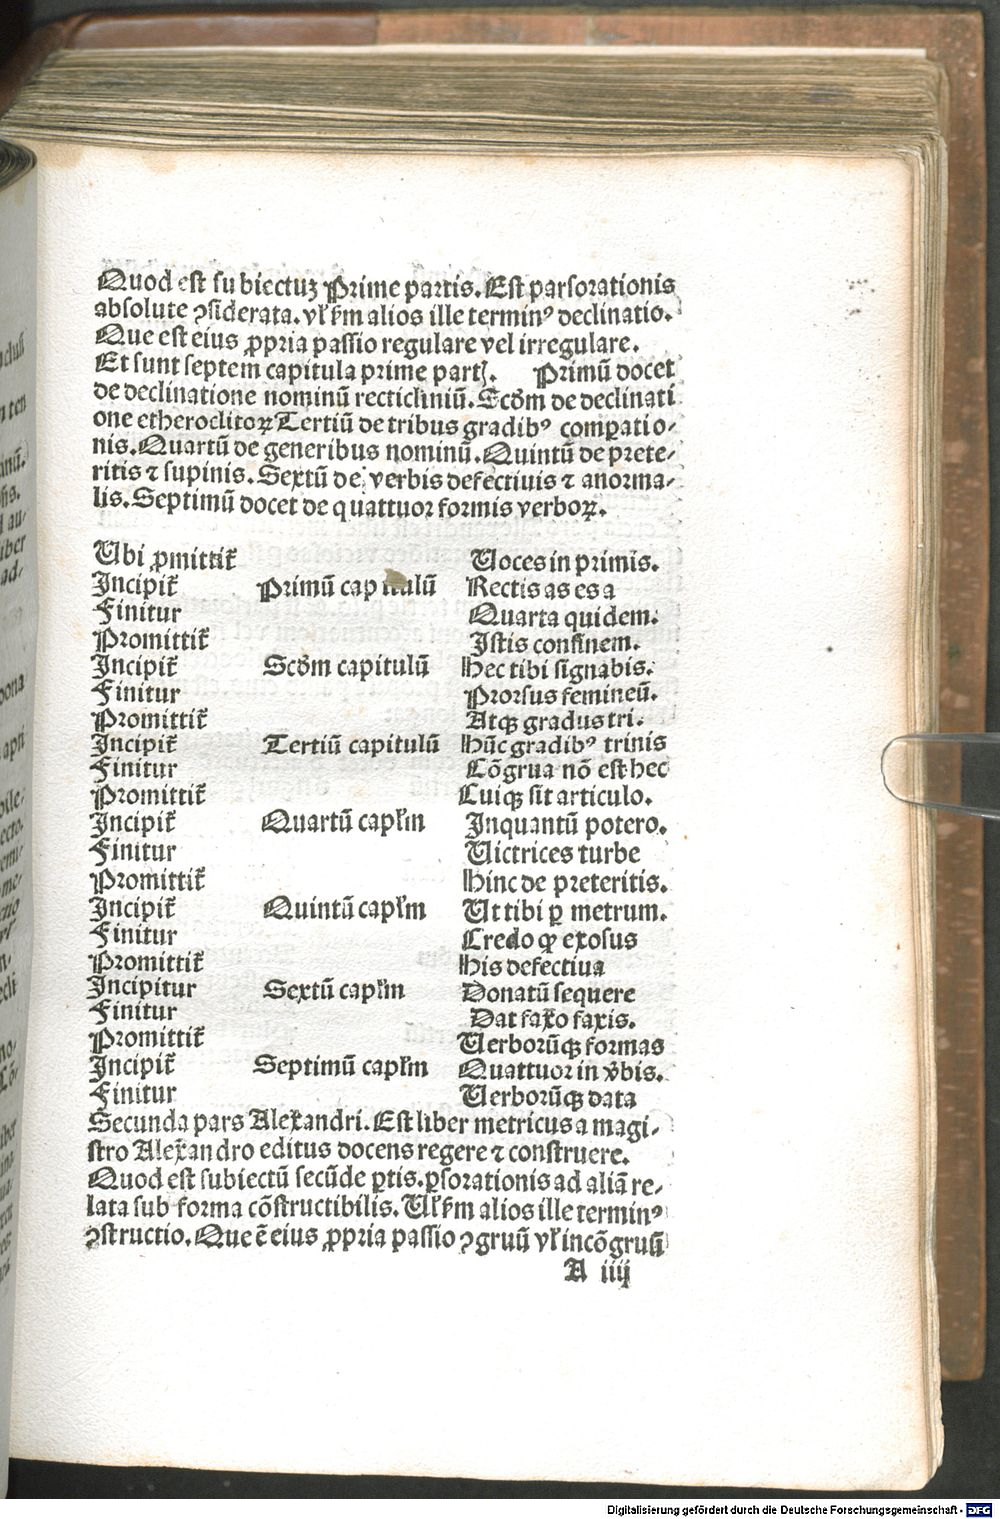 Quod est subiectuꝫ Prime partis. Est parsorationis
absolute ꝯsiderata. vl' ẜm alios ille terminꝰ declinatio.
Que est eius ꝓpria passio regulare vel irregulare.
Et sunt septem capitula prime partꝭ. Primū docet
de declinatione nominū recticliniū. Scd̄m de declinati
one etheroclitoꝝ Tertiū de tribus gradibꝰ comꝑatio⸗
nis. Quartū de generibus nominū. Quintū de prete⸗
ritis ⁊ supinis. Sextū de verbis defectiuis ⁊ anorma⸗
lis. Septimū docet de quattuor formis verboꝝ.
Ubi ꝓmittit᷑ Uoces in primis.
Incipit᷑ Primū capitulū Rectis as es a
Finitur Quarta quidem.
Promittit᷑ Istis confinem.
Incipit᷑ Scd̄m capitulū Hec tibi signabis.
Finitur Prorsus femineū.
Promittit᷑ Atqꝫ gradus tri.
Incipit᷑ Tertiū capitulū Hūc gradibꝰ trinis
Finitur Cōgrua nō est hec
Promittit᷑ Cuiqꝫ sit articulo.
Incipit᷑ Quartū capl'm Inquantū potero.
Finitur Uictrices turbe
Promittit᷑ Hinc de preteritis.
Incipit᷑ Quintū capl'm Ut tibi ꝑ metrum.
Finitur Credo ꝙ exosus
Promittit᷑ His defectiua
Incipitur Sextū capl'm Donatū sequere
Finitur Dat faxo faxis.
Promittit᷑ Uerborūqꝫ formas
Incipit᷑ Septimū capl'm Quattuor in v̄bis.
Finitur Uerborūqꝫ data
Secunda pars Alexandri. Est liber metricus a magi⸗
stro Alexandro editus docens regere ⁊ construere.
Quod est subiectū secūde ꝑtis. ꝑsorationis ad aliā re⸗
lata sub forma cōstructibilis. Ul' ẜm alios ille terminꝰ
ꝯstructio. Que ē eius ꝓpria passio ꝯgruū vl' incōgruū
A iiij
Digitalisierung gefördert durch die Deutsche Forschungsgemeinschaft - DFG